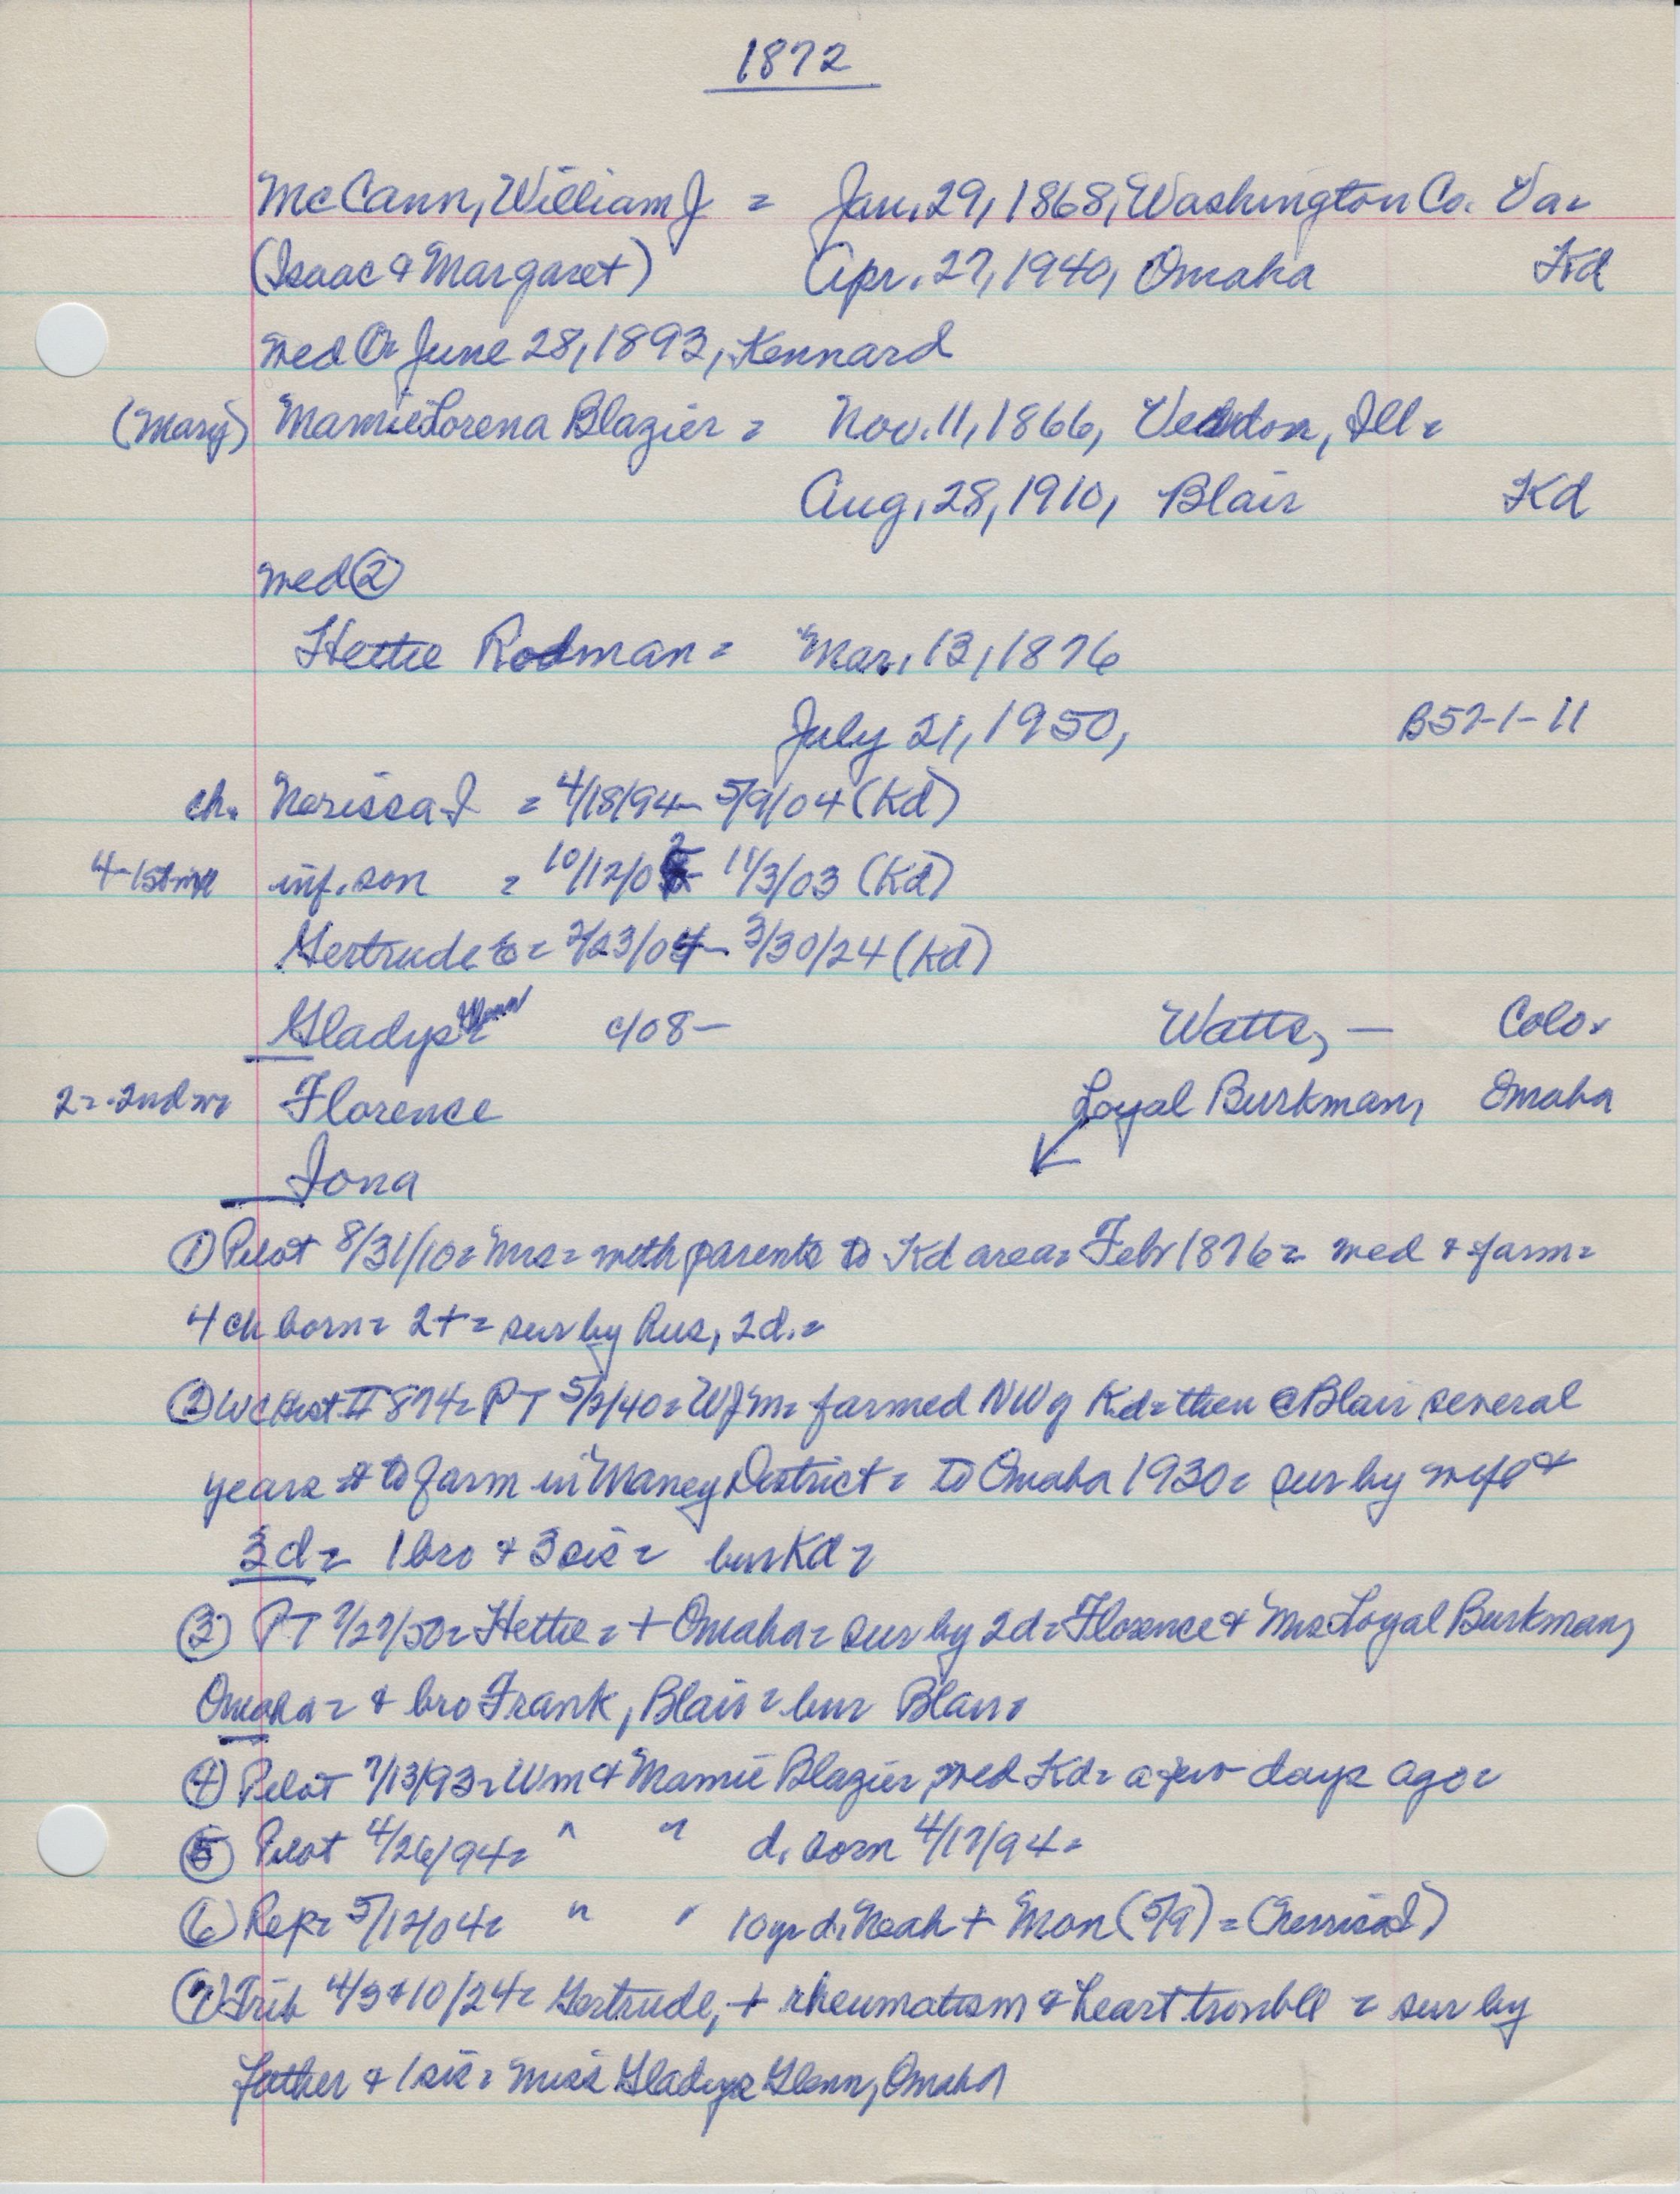 1872
McCann, William J = Jan. 29, 1868, Washington Co. Va =
(Isaac & Margaret) Apr. 27, 1940, Omaha Kd
med ① June 28, 1893, Kennard
(Mary) Mamie Lorena Blazier = Nov. 11, 1866, Ill =
Aug. 28, 1910, Blair Kd
med ②
Hettie Rodman = Mar. 13, 1876
July 21, 1950, B57-1-11
ch. Nerissa I = 4/18/94 - 5/9/04 (Kd)
4-1st inf. son = 10/12/0 - 11/3/03 (Kd)
Gertrude E = 2/23/04 - 3/30/24 (Kd)
Gladys c/08 - Watts, — Colo
2 = 2nd m Florence Loyal Burkman, Omaha
Iona
① Pilot 8/31/10 = Mrs = with parents to Kd area = Febr 1876 = med & farm =
4 ch born = 2 + = sur by hus, 2d. =
② WC Hist II 874 = PT 5/2/40 = WJM = farmed NW of Kd = then @ Blair several
years & to farm in Maney District = to Omaha 1930 = sur by wife &
3d = 1 bro & 3 sis = bur Kd =
③ PT 7/27/50 = Hettie = + Omaha = sur by 2d = Florence & Mrs Loyal Burkman,
Omaha = & bro Frank, Blair = bur Blair =
④ Pilot 7/13/93 = Wm & Mamie Blazier, med Kd = a few days ago =
⑤ Pilot 4/26/94 = " " d. born 4/17/94 =
⑥ Rep = 5/12/04 = " " 10 yr d. Noah + Mon (5/9) = (Nerrisa I)
⑦ Trib 4/3 & 10/24 = Gertrude, + rheumatism & heart trouble = sur by
father & 1 sis = Miss Gladys Glenn, Omaha